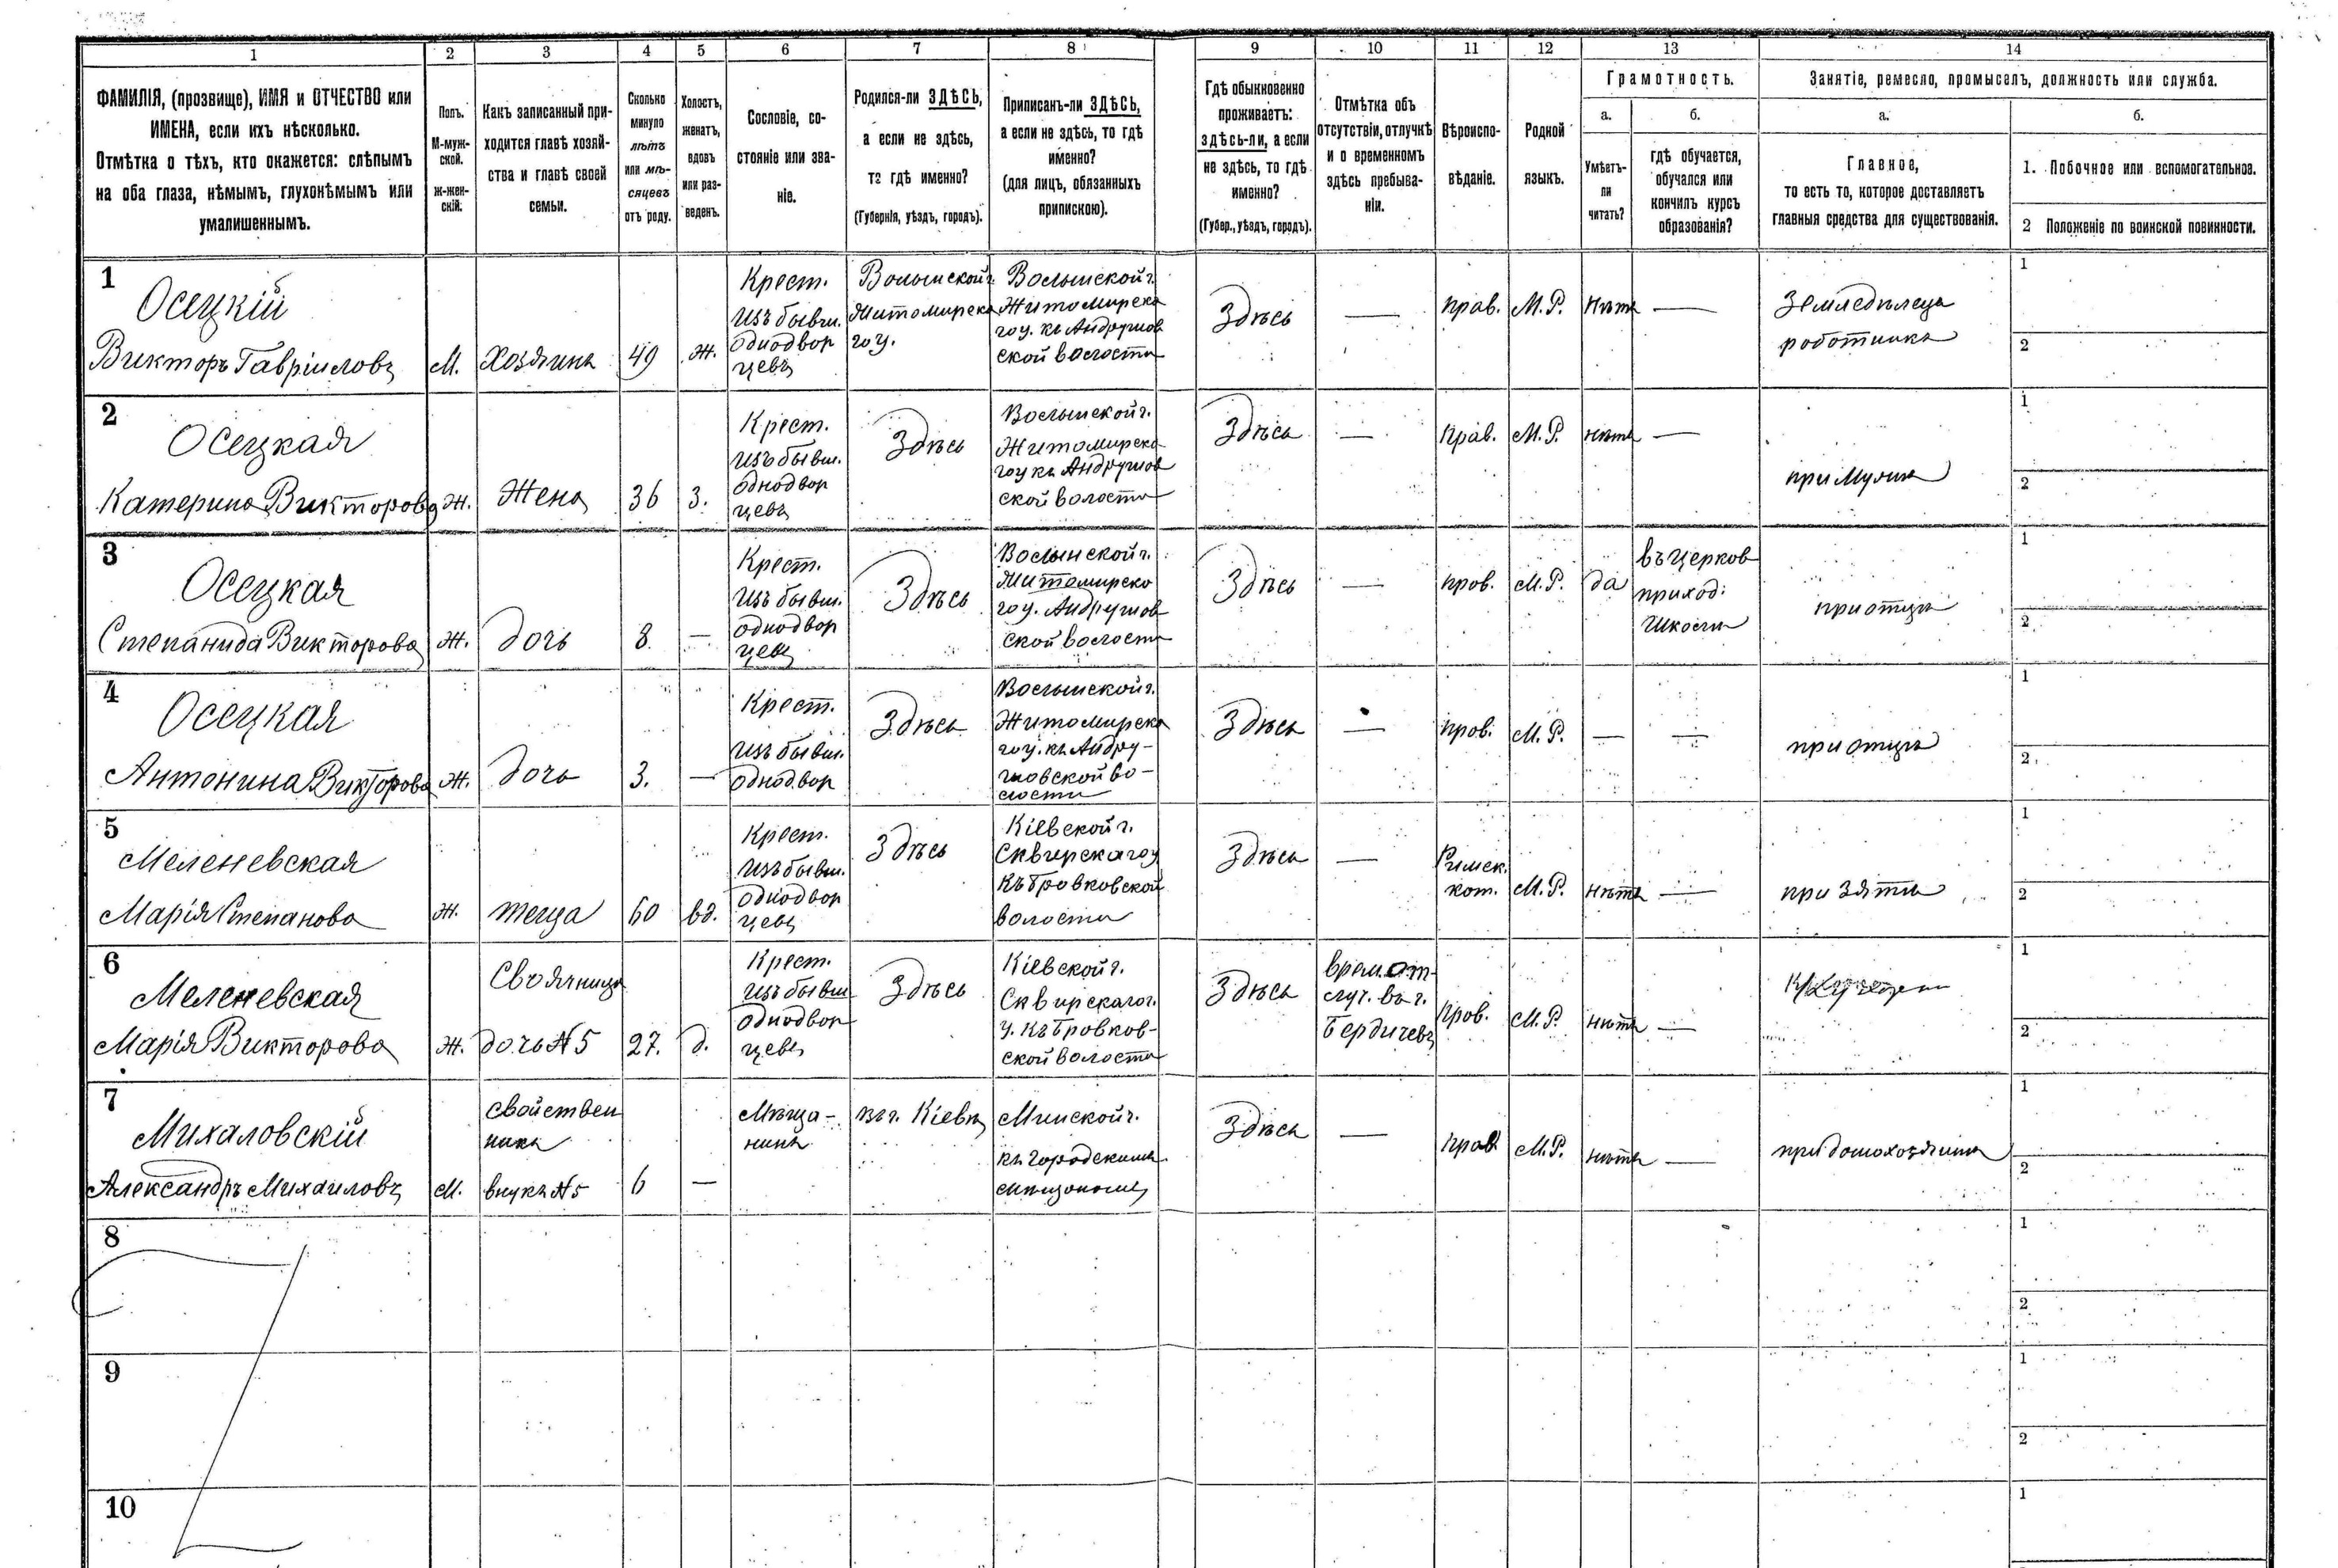 1 2 3 4 5 6 7 8 9 10 11 12 13 14
ФАМИЛІЯ, (прозвище), ИМЯ и ОТЧЕСТВО или
ИМЕНА, если ихъ нѣсколько.
Отмѣтка о тѣхъ, кто окажется: слѣпымъ
на оба глаза, нѣмымъ, глухонѣмымъ или
умалишеннымъ.
Полъ.
М-муж-
ской.
ж-жен-
скій.
Какъ записанный при-
ходится главѣ хозяй-
ства и главѣ своей
семьи.
Сколько
минуло
лѣтъ
или мѣ-
сяцевъ
отъ роду.
Холостъ,
женатъ,
вдовъ
или раз-
веденъ.
Сословіе, со-
стояніе или зва-
ніе.
Родился-ли ЗДѢСЬ,
а если не здѣсь,
то гдѣ именно?
(Губернія, уѣздъ, городъ).
Приписанъ-ли ЗДѢСЬ,
а если не здѣсь, то гдѣ
именно?
(для лицъ, обязанныхъ
припискою).
Гдѣ обыкновенно
проживаетъ:
здѣсь-ли, а если
не здѣсь, то гдѣ
именно?
(Губер., уѣздъ, городъ).
Отмѣтка объ
отсутствіи, отлучкѣ
и о временномъ
здѣсь пребыва-
ніи.
Вѣроиспо-
вѣданіе.
Родной
языкъ.
Грамотность.
а.
Умѣетъ-
ли
читать?
б.
гдѣ обучается,
обучался или
кончилъ курсъ
образованія?
Занятіе, ремесло, промыселъ, должность или служба.
а.
Главное,
то есть то, которое доставляетъ
главныя средства для существованія.
б.
1. Побочное или вспомогательное.
2 Положеніе по воинской повинности.
1
Осецкій
Викторъ Гавріиловъ
М.
Хозяинъ
49
Ж.
Крест.
изъ бывш.
однодвор
цевъ
Волынской г.
Житомирска
го у.
Волынской г.
Житомирска
го у. къ Андрушов
ской волости
Здѣсь
—
прав.
М.Р.
нѣтъ
—
Земледѣлецъ
роботникъ
1
2
2
Осецкая
Катерина Викторова
Ж.
Жена
36
З.
Крест.
изъ бывш.
однодвор
цевъ
Здѣсь
Волынской г.
Житомирска
го у къ Андрушов
ской волости
Здѣсь
—
прав.
М.Р.
нѣтъ
—
при мужѣ
1
2
3
Осецкая
Степанида Викторова
Ж.
дочь
8.
—
Крест.
изъ бывш.
однодвор
цевъ
Здѣсь
Волынской г.
Житомирско
го у. Андрушов
ской волости
Здѣсь
—
пров.
М.Р.
да
въ церков
приход:
школѣ
при отцѣ
1
2
4
Осецкая
Антонина Викторова
Ж.
дочь
3.
—
Крест.
изъ бывш.
однодвор
Здѣсь
Волынской г.
Житомирска
го у. къ Андру-
шовской во-
лости
Здѣсь
—
пров.
М.Р.
—
—
при отцѣ
1
2
5
Меленевская
Марія Степанова
Ж.
теща
60
вд.
Крест.
изъ бывш.
однодвор
цевъ
Здѣсь
Кіевской г.
Сквирскаго у
къ Бровковской
волости
Здѣсь
—
Римск.
кот.
М.Р.
нѣтъ
—
при зятѣ
1
2
6
Меленевская
Марія Викторова
Ж.
Своячница
дочь №5
27.
д.
Крест.
изъ бывш
однодвор
цевъ
Здѣсь
Кіевской г.
Сквирскаго
у. къ Бровков-
ской волости
Здѣсь
врем. от-
луч. въ г.
Бердичевъ
пров.
М.Р.
нѣтъ
—
1
2
7
Михаловскій
Александръ Михаиловъ
М.
свойствен
никъ
внукъ №5
6
—
Мѣща-
нинъ
въ г. Кіевѣ
Минской г.
къ городскимъ
мѣщанамъ
Здѣсь
—
прав
М.Р.
нѣтъ
—
при домохозяинѣ
1
2
8
1
2
9
1
2
10
1